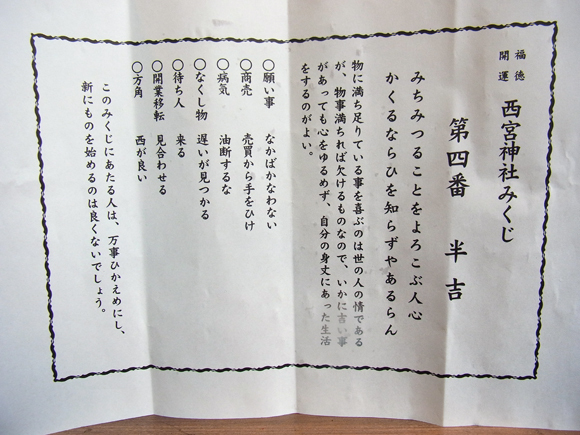 福徳
開運
西宮神社みくじ
第四番 半吉
みちみつることをよろこぶ人心
かくるならひを知らずやあるらん
物に満ち足りている事を喜ぶのは世の人の情である
が、物事満ちれば欠けるものなので、いかに吉い事
があっても心をゆるめず、自分の身丈にあった生活
をするのがよい。
○願い事 なかばかなわない
○商売 売買から手をひけ
○病気 油断するな
○なくし物 遅いが見つかる
○待ち人 来る
○開業移転 見合わせる
○方角 西が良い
このみくじにあたる人は、万事ひかえめにし、
新にものを始めるのは良くないでしょう。